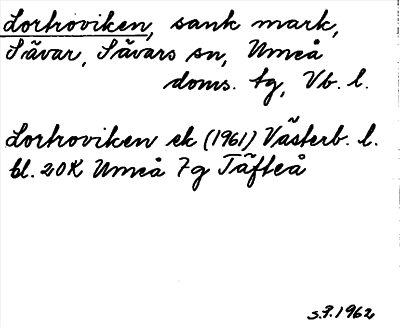 Lortroviken, sank mark,
Sävar, Sävars sn, Umeå
doms. tg, Vb. l.
Lortroviken ek (1961) Västerb. l.
bl. 20K Umeå 7g Täfteå
S.F. 1962